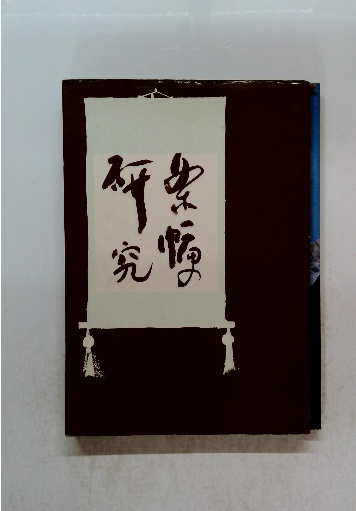 条幅の
研究